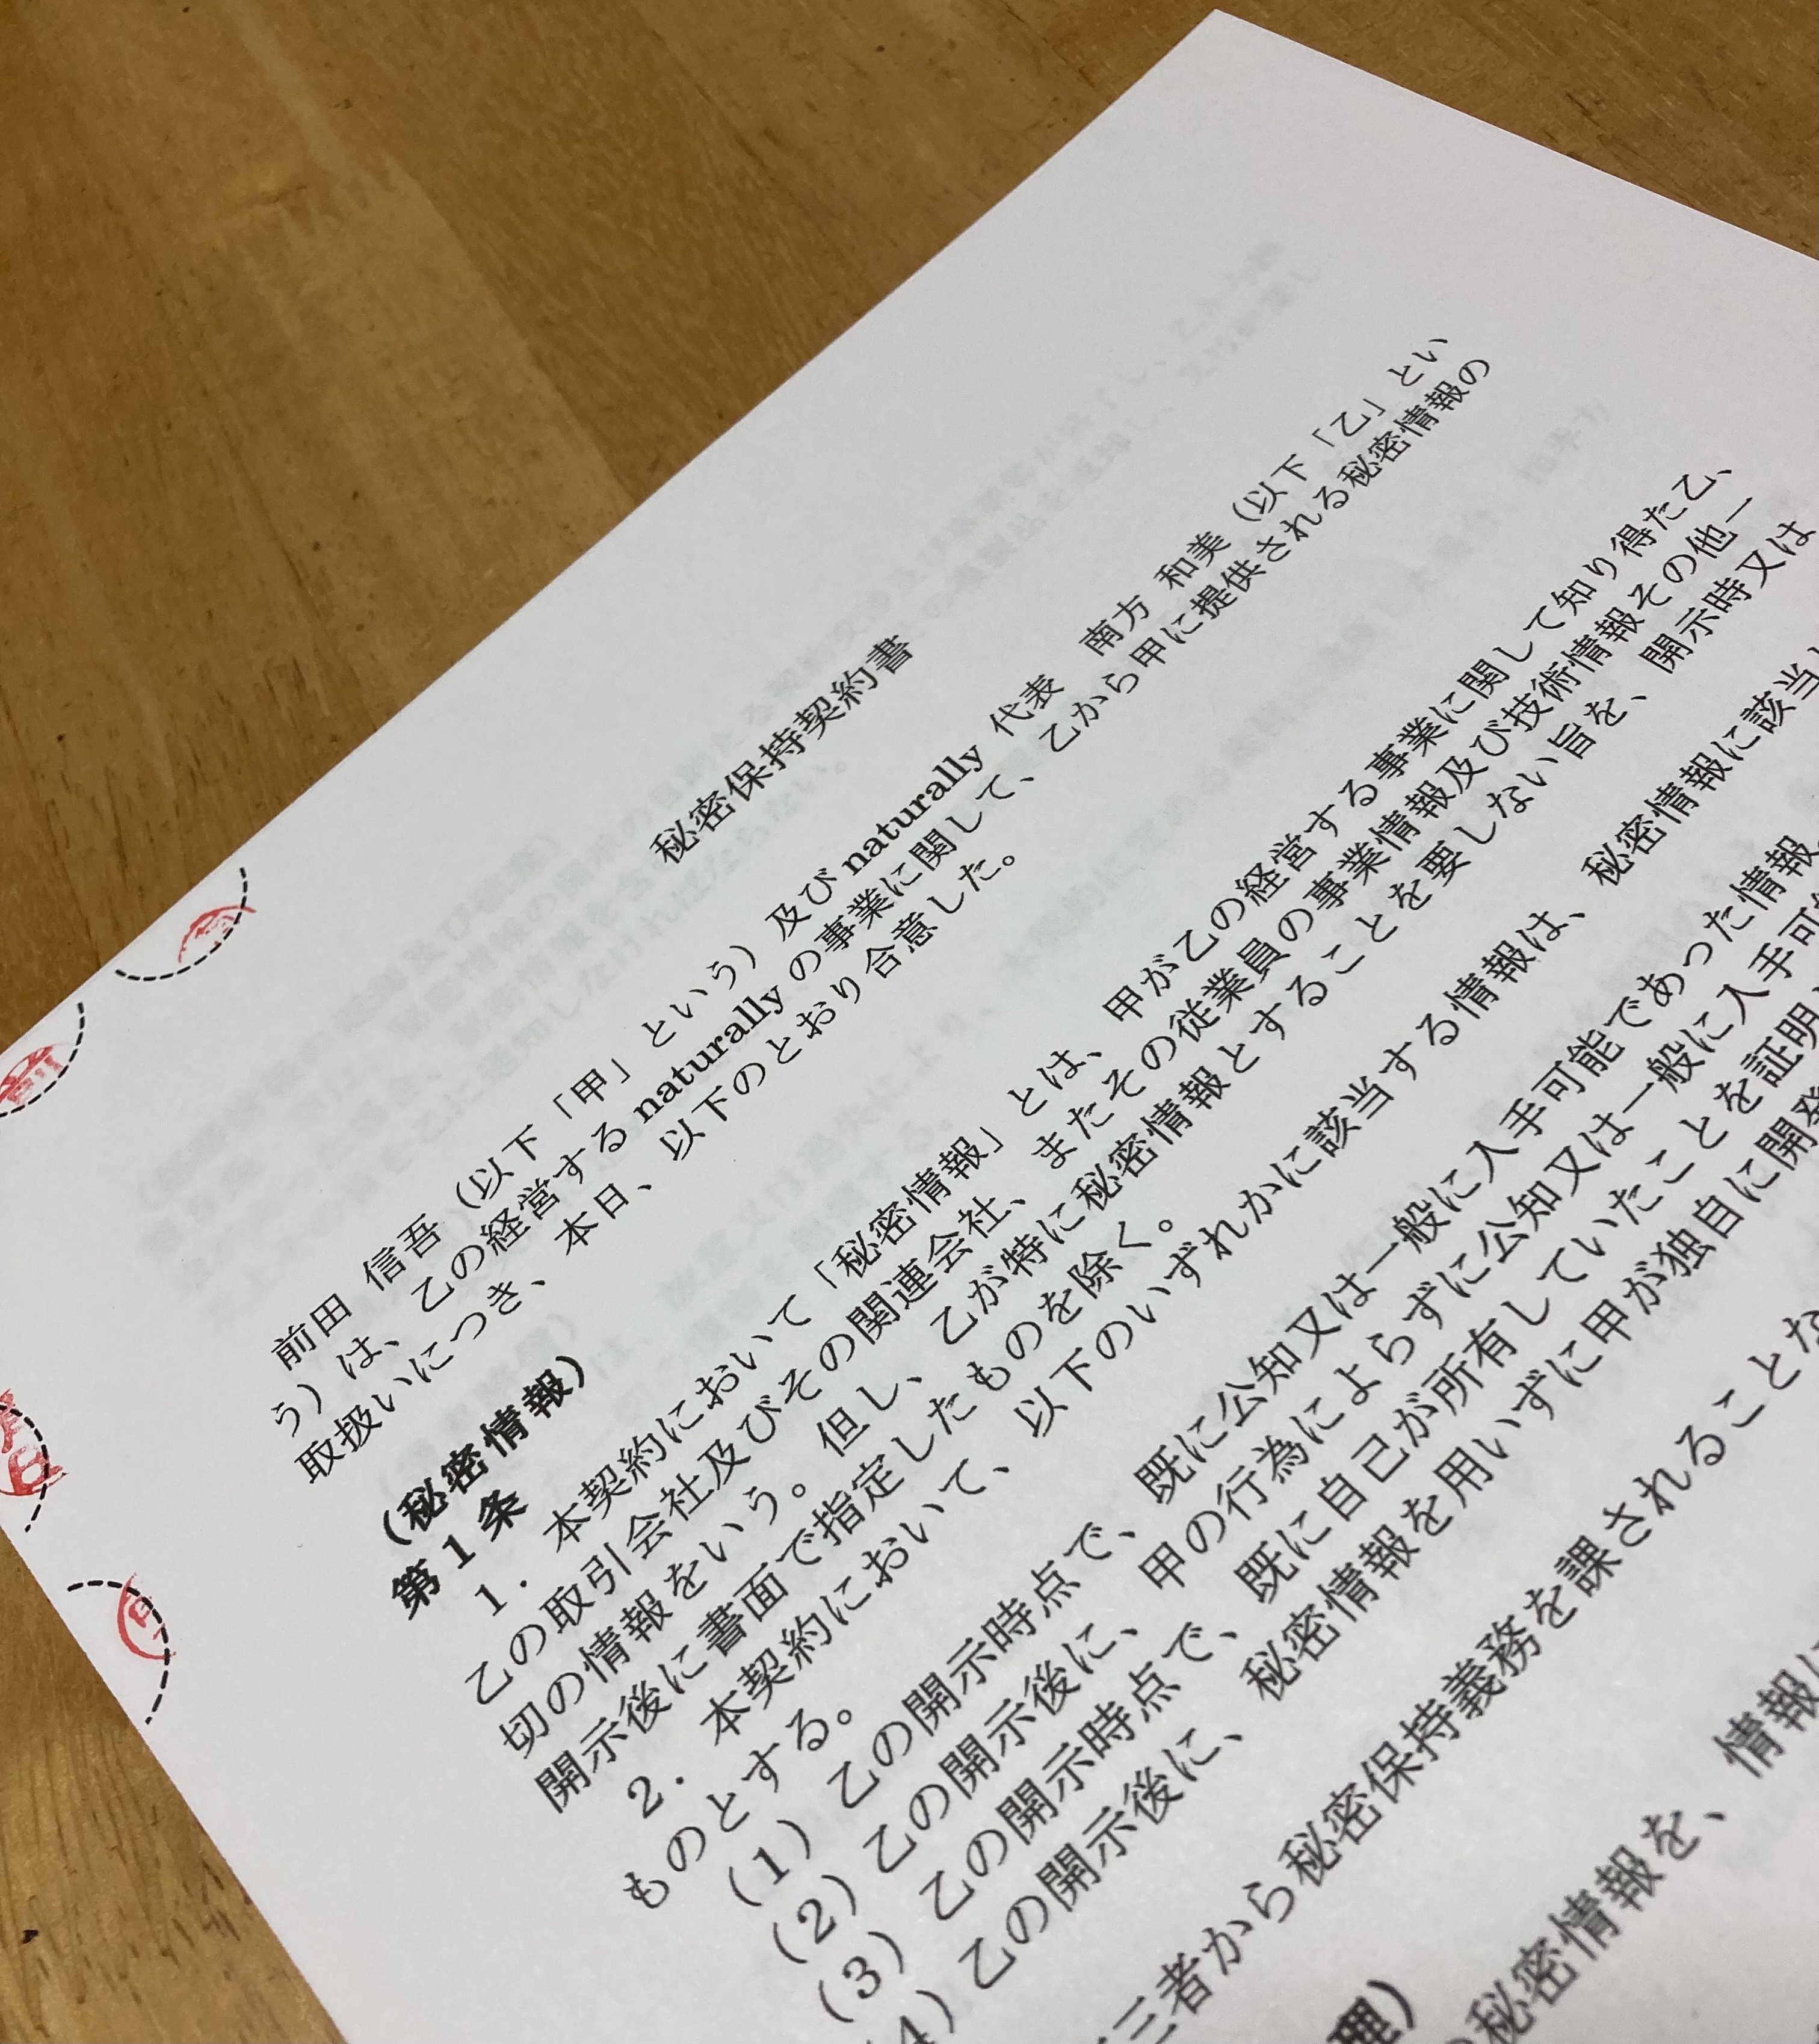 秘密保持契約書
前田 信吾（以下「甲」という）及び naturally 代表 南方 和美（以下「乙」とい
う）は、乙の経営する naturally の事業に関して、乙から甲に提供される秘密情報の
取扱いにつき、本日、以下のとおり合意した。
（秘密情報）
第１条
１． 本契約において「秘密情報」とは、甲が乙の経営する事業に関して知り得た乙、
乙の取引会社及びその関連会社、またその従業員の事業情報及び技術情報その他一
切の情報をいう。但し、乙が特に秘密情報とすることを要しない旨を、開示時又は
開示後に書面で指定したものを除く。
２． 本契約において、以下のいずれかに該当する情報は、秘密情報に該当し
ものとする。
（１） 乙の開示時点で、既に公知又は一般に入手可能であった情報
（２） 乙の開示後に、甲の行為によらずに公知又は一般に入手可
（３） 乙の開示時点で、既に自己が所有していたことを証明
４） 乙の開示後に、秘密情報を用いずに甲が独自に開発
三者から秘密保持義務を課されることな
理）
秘密情報を、情報に